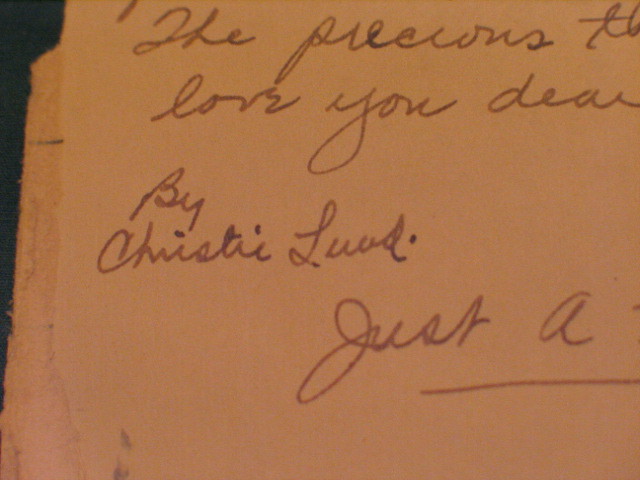 The precious th
love you dear
By
Christie Lund.
Just A